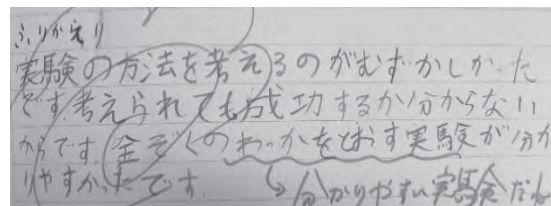 ふりかえり
実験の方法を考えるのがむずかしかった
です。考えられても成功するか分からない
からです。金ぞくのわっかをとおす実験が分か
りやすかったです。
↳分かりやすい実験だね